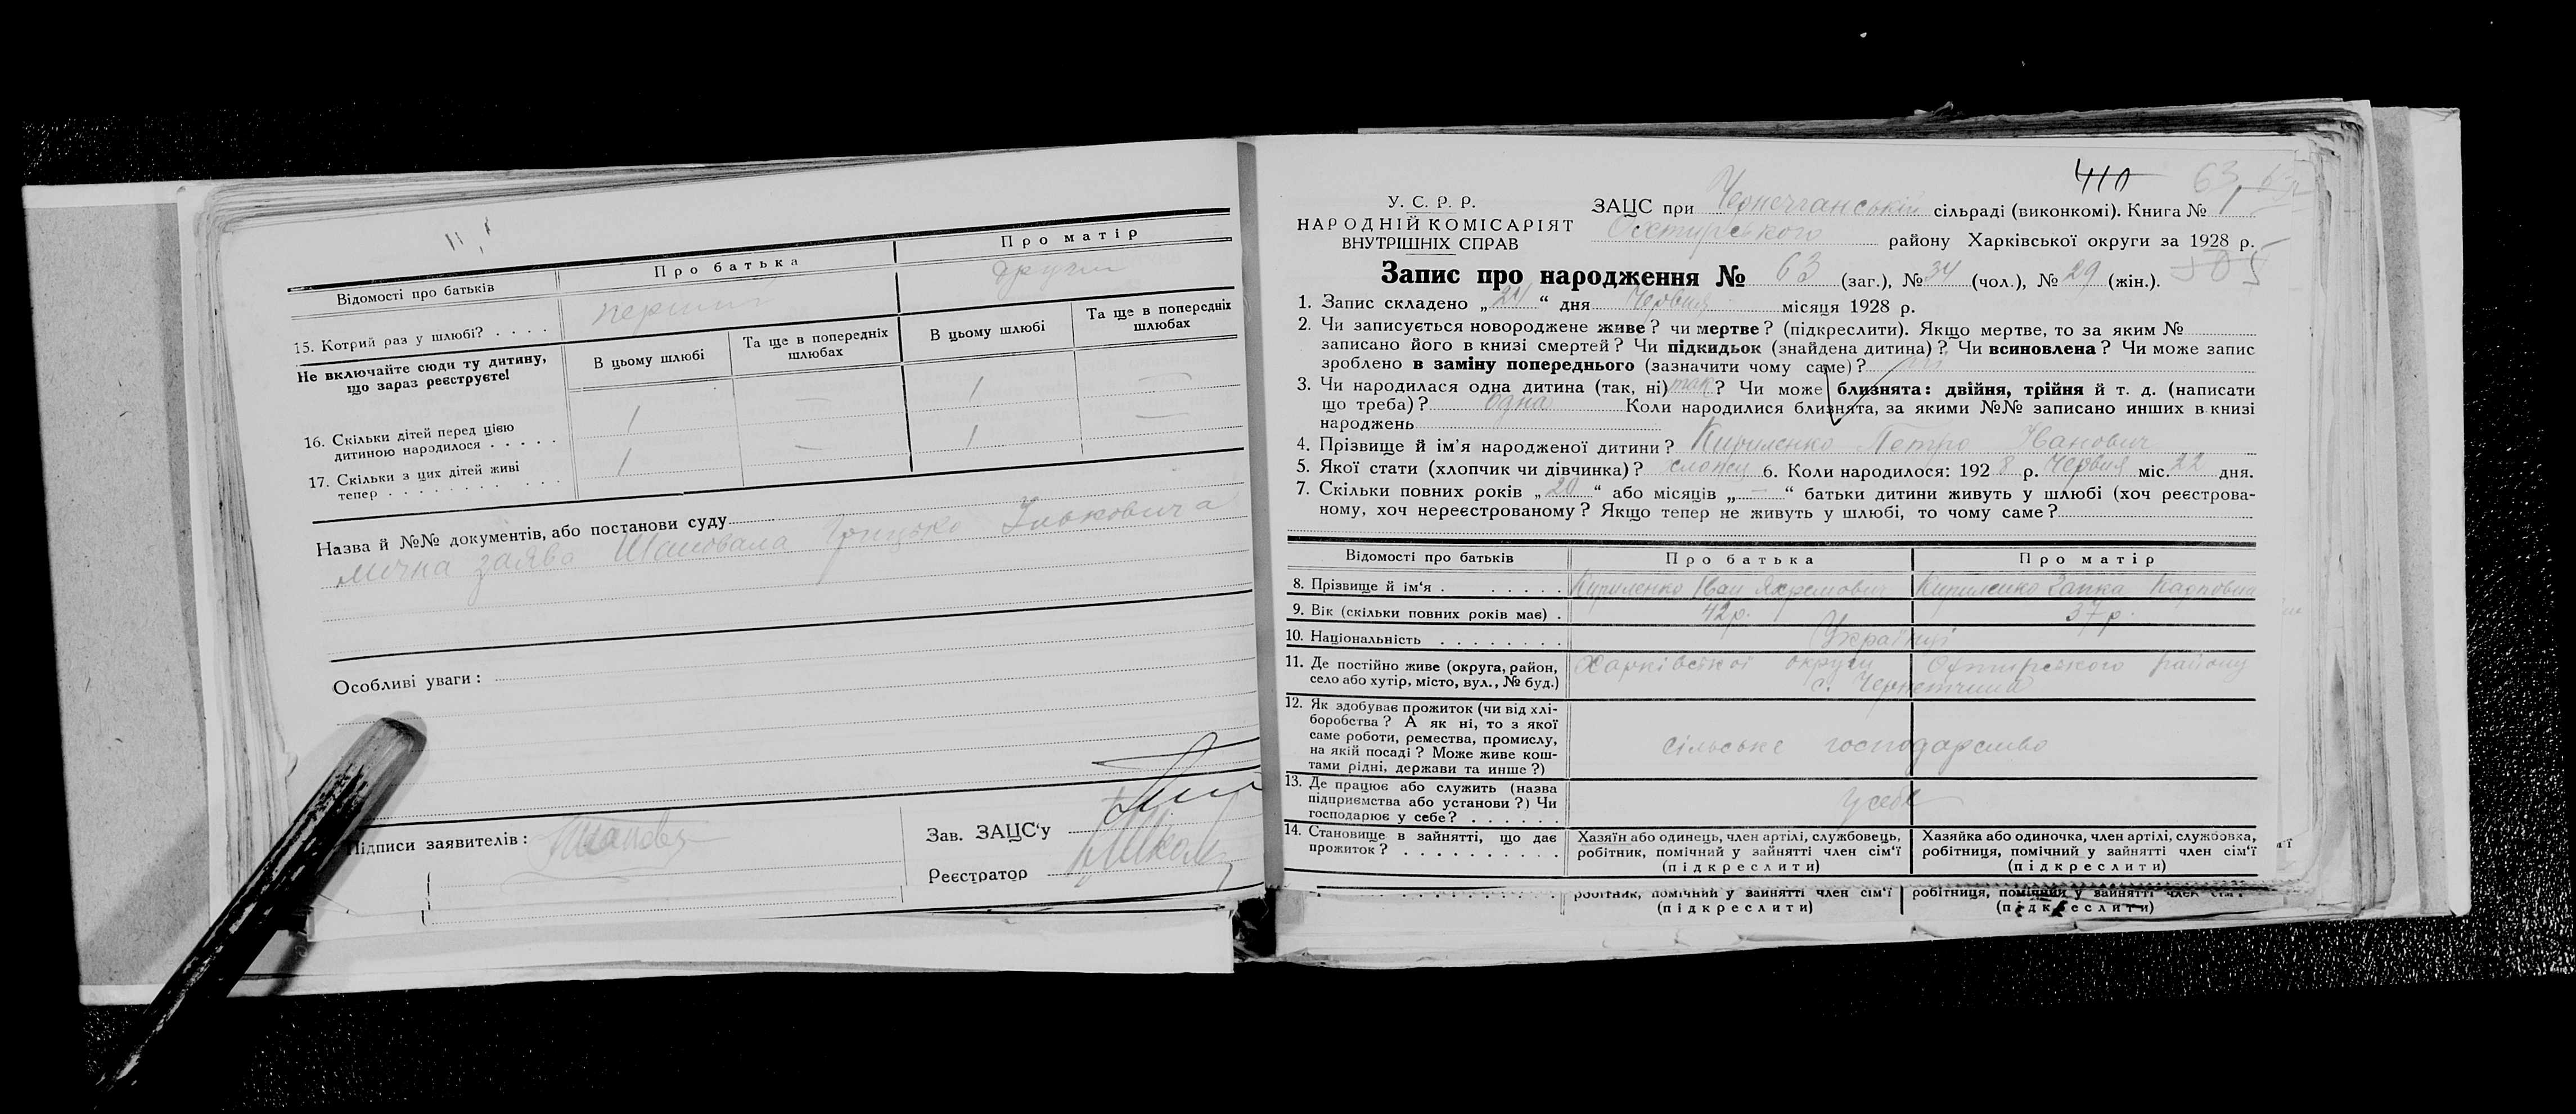 Відомості про батьків
Про батька
Про матір
15. Котрий раз у шлюбі? . . . .
перший
другий
Не включайте сюди ту дитину, що зараз реєструєте!
В цьому шлюбі
Та ще в попередніх шлюбах
В цьому шлюбі
Та ще в попередніх шлюбах
16. Скільки дітей перед цією
дитиною народилося . . . . .
1 — 1 —
17. Скільки з цих дітей живі
тепер . . . . . . . . . . .
1 — 1 —
Назва й №№ документів, або постанови суду
лична заява Шаповала Грицько
Особливі уваги:
Підписи заявителів:
Зав. ЗАЦС'у
Реєстратор
410 63
У. С. Р. Р.
НАРОДНІЙ КОМІСАРІЯТ
ВНУТРІШНІХ СПРАВ
ЗАЦС при Чернеччанській сільраді (виконкомі). Книга № 1
Охтирського району Харківської округи за 1928 р.
505
Запис про народження № 63 (заг.), № 34 (чол.), № 29 (жін.).
1. Запис складено „24“ дня Червня місяця 1928 р.
2. Чи записується новороджене живе? чи мертве? (підкреслити). Якщо мертве, то за яким №
записано його в книзі смертей? Чи підкидьок (знайдена дитина)? Чи всиновлена? Чи може запис
зроблено в заміну попереднього (зазначити чому саме)?
3. Чи народилася одна дитина (так, ні) так? Чи може близнята: двійня, трійня й т. д. (написати
що треба)? одна Коли народилися близнята, за якими №№ записано инших в книзі
народжень
4. Прізвище й ім'я народженої дитини? Кириленко Петро Іванович
5. Якої стати (хлопчик чи дівчинка)? хлопец 6. Коли народилося: 1928 р. Червня міс. 22 дня.
7. Скільки повних років „20“ або місяців „—“ батьки дитини живуть у шлюбі (хоч реєстрова-
ному, хоч нереєстрованому? Якщо тепер не живуть у шлюбі, то чому саме?
Відомості про батьків
Про батька
Про матір
8. Прізвище й ім'я . . . . . . .
Кириленко Іван Яхремович
Кириленко Ганка Карповна
9. Вік (скільки повних років має) .
42 р.
37 р.
10. Національність . . . . . . . .
Українці
11. Де постійно живе (округа, район,
село або хутір, місто, вул., № буд.)
Харківської округи Охтирского району
с. Чернетчина
12. Як здобуває прожиток (чи від хлі-
боробства? А як ні, то з якої
саме роботи, ремества, промислу,
на якій посаді? Може живе кош-
тами рідні, держави та инше?)
сільське господарство
13. Де працює або служить (назва
підприємства або установи?) Чи
господарює у себе? . . . . . .
у себе
14. Становище в зайнятті, що дає
прожиток? . . . . . . . . . .
Хазяїн або одинець, член артілі, службовець,
робітник, помічний у зайнятті член сім'ї
(підкреслити)
Хазяйка або одиночка, член артілі, службовка,
робітниця, помічний у зайнятті член сім'ї
(підкреслити)
робітник, помічний у зайнятті член сім'ї
(підкреслити)
робітниця, помічний у зайнятті член сім'ї
(підкреслити)